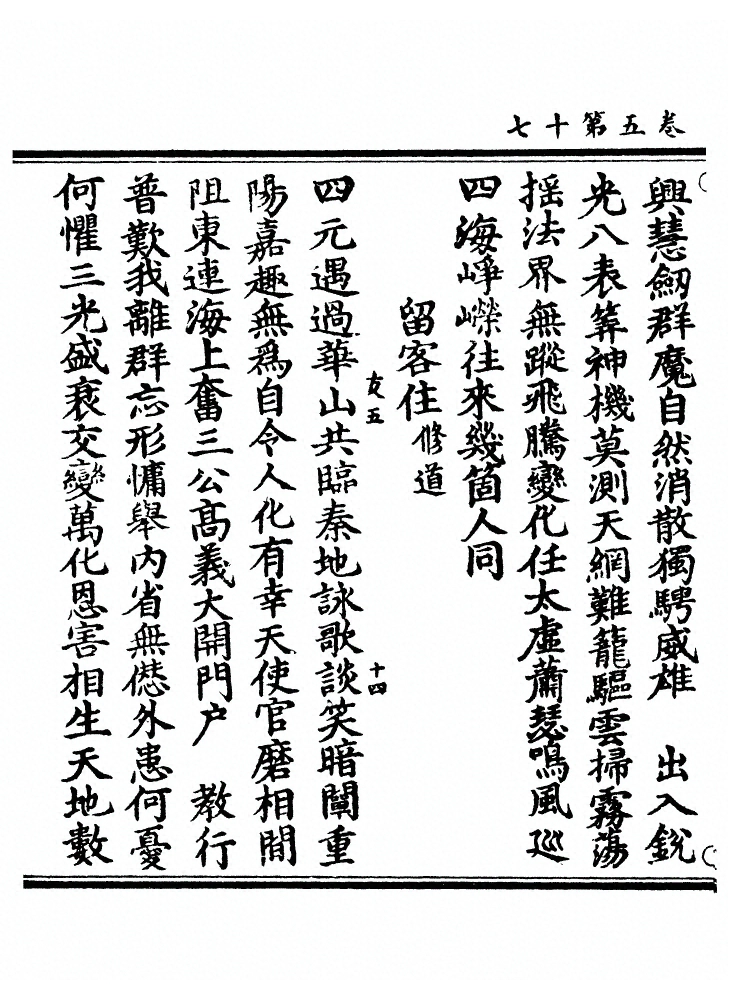 卷五第十七
興慧劒群魔自然消散獨騁威雄　出入銳
光八表筭神機莫測天網難籠驅雲掃霧蕩
揺法界無蹤飛騰變化任太虛蕭瑟鳴風巡
四海崢嶸往來幾箇人同
留客住修道
友五
十四
四元遇過華山共臨秦地詠歌談笑暗闡重
陽嘉趣無爲自令人化有幸天使官磨相間
阻東連海上奮三公高義大開門户　教行
普歎我離群忘形慵舉內省無愆外患何憂
何懼三光盛衰交變萬化恩害相生天地數